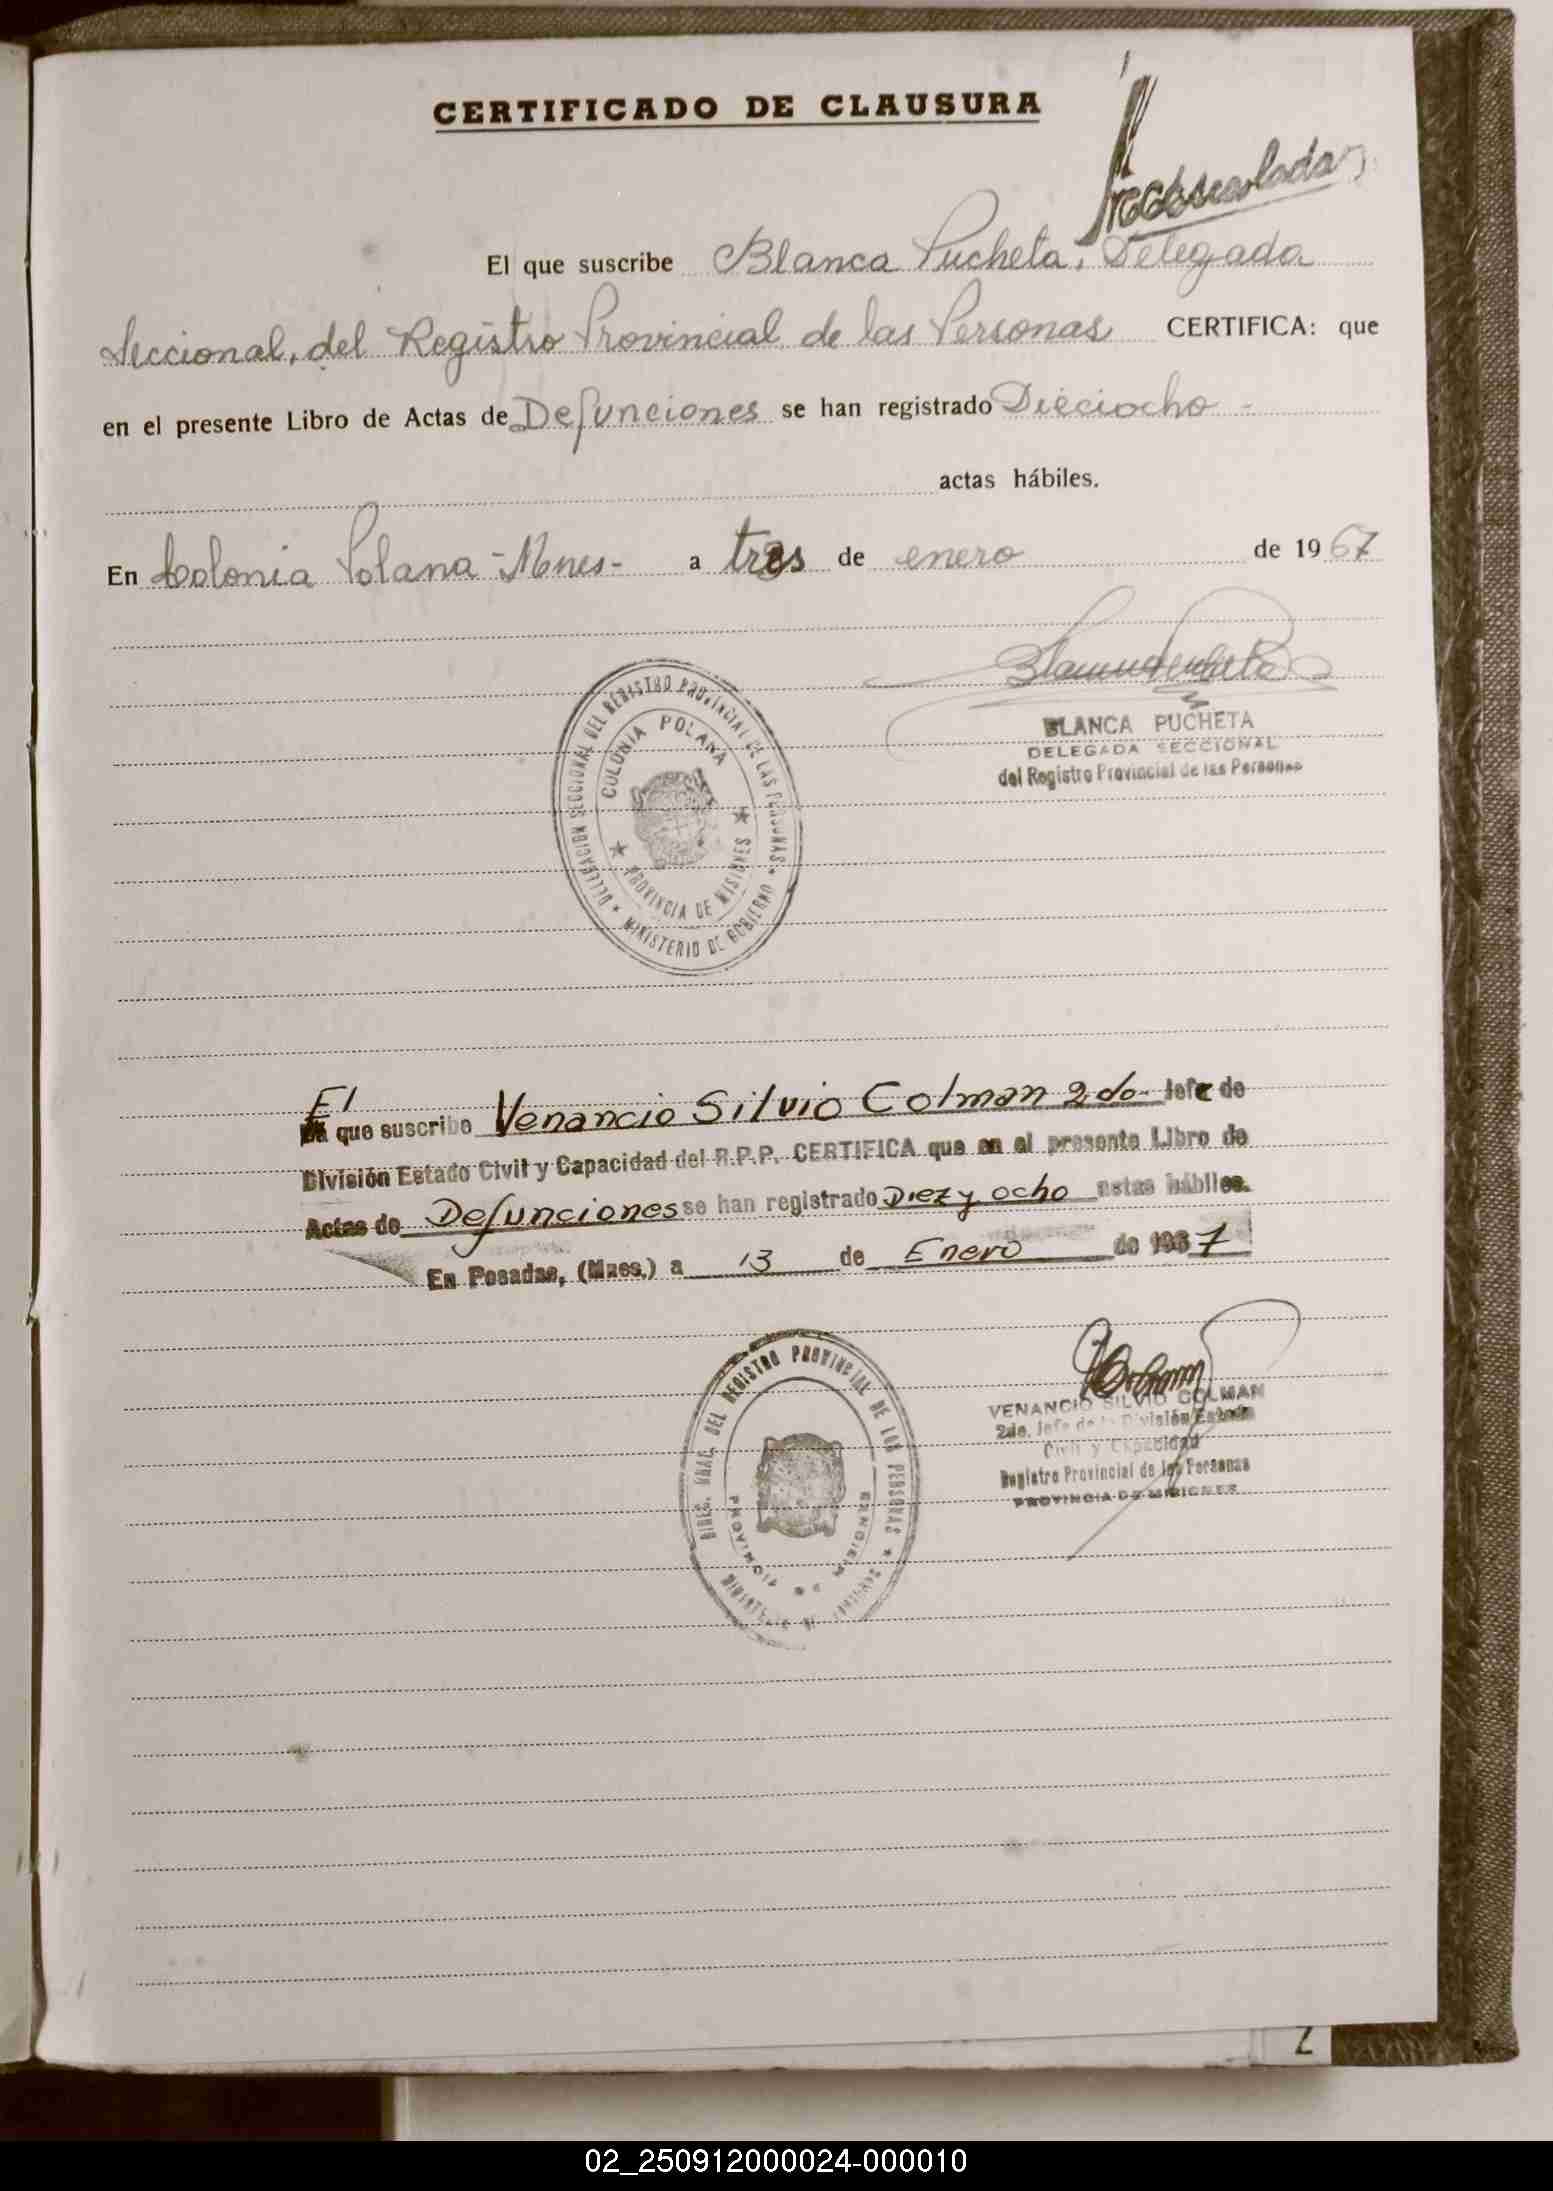 CERTIFICADO DE CLAUSURA
El que suscribe Blanca Pucheta, Delegada
Seccional, del Registro Provincial de las Personas CERTIFICA: que
en el presente Libro de Actas de Defunciones se han registrado Dieciocho -
actas hábiles.
En Colonia Polana - Mnes- a tres de enero de 1967
DELEGACION SECCIONAL DEL REGISTRO PROVINCIAL DE LAS PERSONAS
COLONIA POLANA
PROVINCIA DE MISIONES
MINISTERIO DE GOBIERNO
BLANCA PUCHETA
DELEGADA SECCIONAL
del Registro Provincial de las Personas
El
La que suscribe Venancio Silvio Colman 2do- Jefe de
División Estado Civil y Capacidad del R.P.P. CERTIFICA que en el presente Libro de
Actas de Defunciones se han registrado Diez y ocho actas hábiles.
En Posadas, (Mnes.) a 13 de Enero de 1967
DIREC. GRAL. DEL REGISTRO PROVINCIAL DE LAS PERSONAS
VENANCIO SILVIO COLMAN
2do. Jefe de la División Estado
Civil y Capacidad
Registro Provincial de las Personas
PROVINCIA DE MISIONES
2
02_250912000024-000010